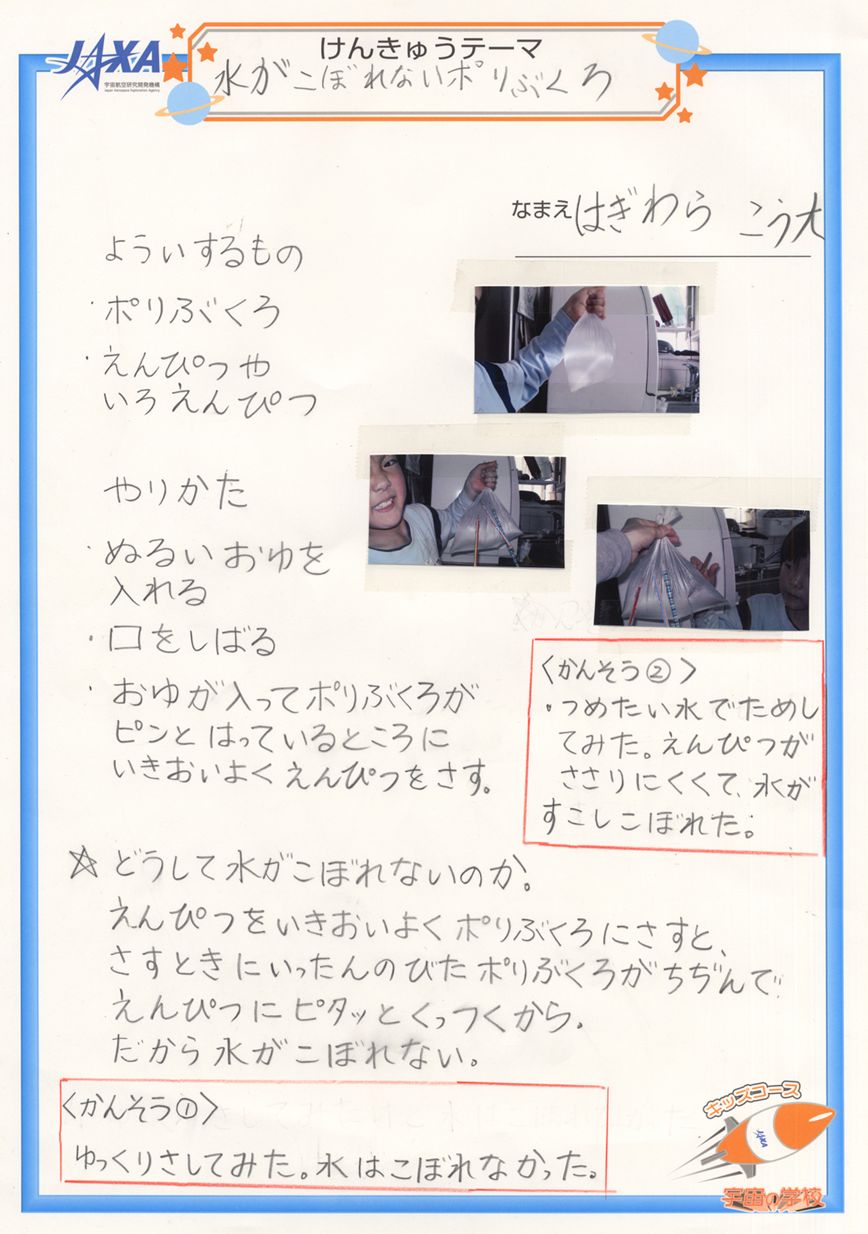 JAXA
宇宙航空研究開発機構
Japan Aerospace Exploration Agency
けんきゅうテーマ
水がこぼれないポリぶくろ
なまえ はぎわら こう大
よういするもの
・ポリぶくろ
・えんぴつや
いろえんぴつ
やりかた
・ぬるいおゆを
入れる
・口をしばる
・おゆが入ってポリぶくろが
ピンとはっているところに
いきおいよくえんぴつをさす。
〈かんそう②〉
・つめたい水でためし
てみた。えんぴつが
ささりにくくて、水が
すこしこぼれた。
☆どうして水がこぼれないのか。
えんぴつをいきおいよくポリぶくろにさすと、
さすときにいったんのびたポリぶくろがちぢんで
えんぴつにピタッとくっつくから。
だから水がこぼれない。
〈かんそう①〉
ゆっくりさしてみた。水はこぼれなかった。
キッズコース
JAXA
宇宙の学校